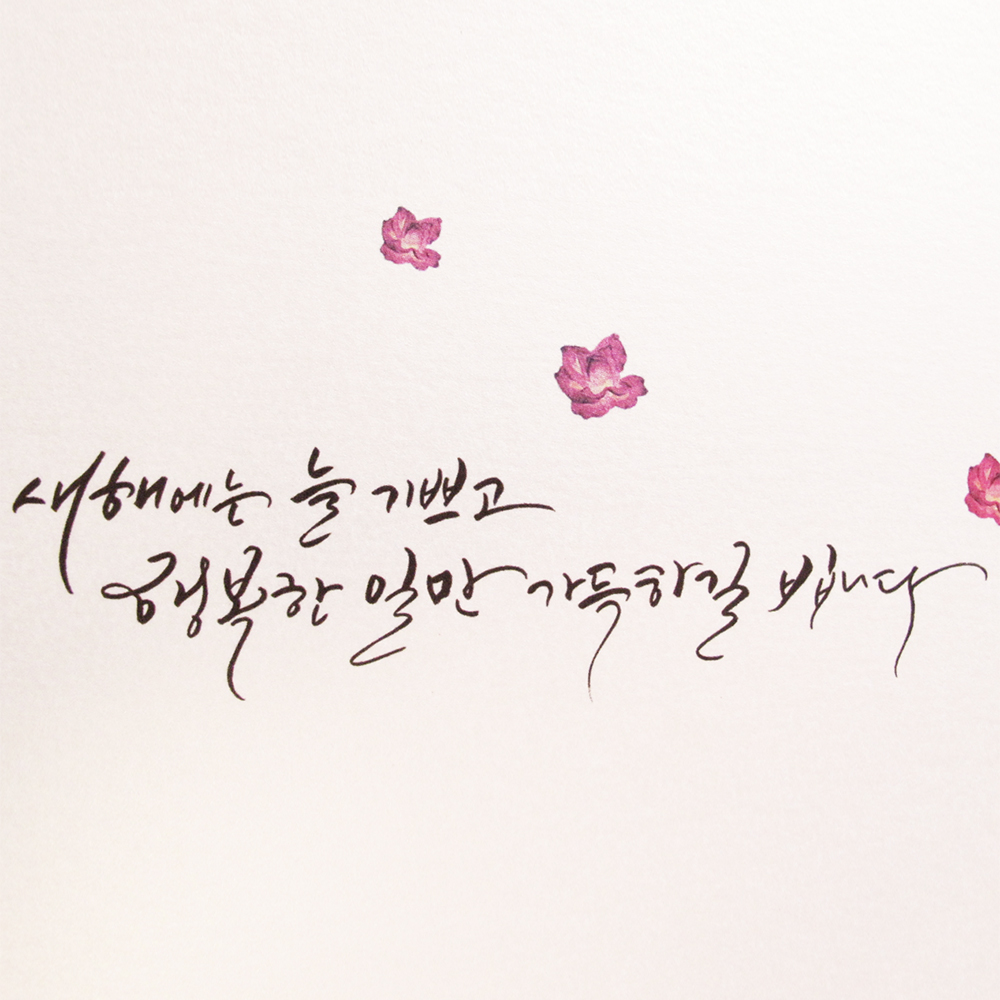 새해에는 늘 기쁘고
행복한 일만 가득하길 빕니다